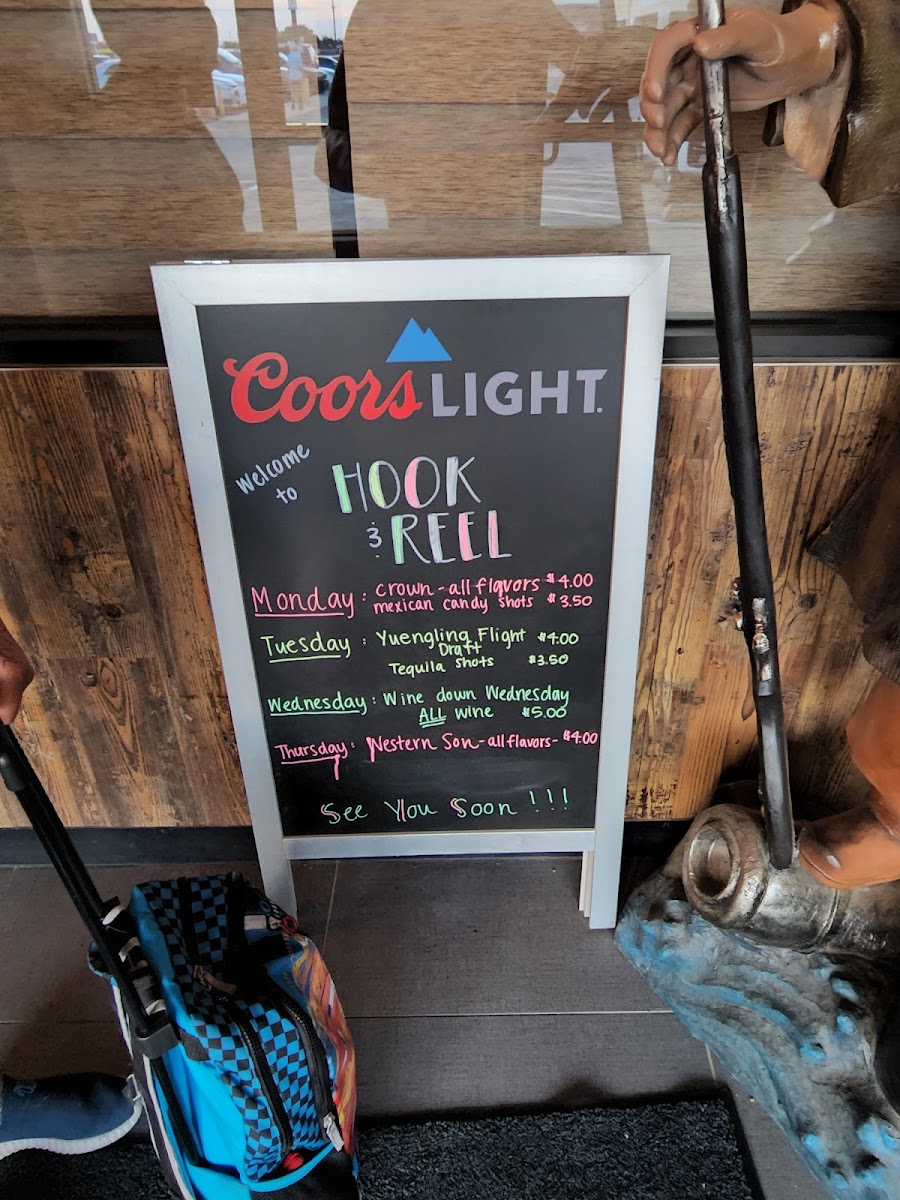 Coors LIGHT.
Welcome to
HOOK
& REEL
Monday : crown - all flavors $4.00
mexican candy shots $3.50
Tuesday : Yuengling Flight $4.00
Draft
Tequila shots $3.50
Wednesday : Wine down Wednesday
ALL wine $5.00
Thursday : Western Son - all flavors - $4.00
See You Soon !!!